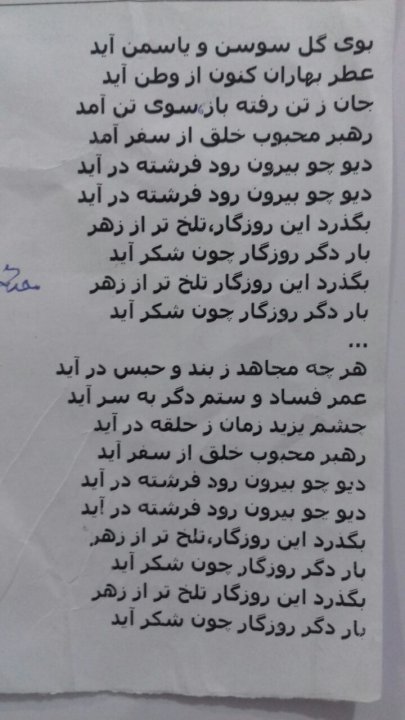 بوی گل سوسن و یاسمن آید
عطر بهاران کنون از وطن آید
جان ز تن رفته باز سوی تن آمد
رهبر محبوب خلق از سفر آمد
دیو چو بیرون رود فرشته در آید
دیو چو بیرون رود فرشته در آید
بگذرد این روزگار،تلخ تر از زهر
بار دگر روزگار چون شکر آید
بگذرد این روزگار تلخ تر از زهر
بار دگر روزگار چون شکر آید
...
هر چه مجاهد ز بند و حبس در آید
عمر فساد و ستم دگر به سر آید
چشم یزید زمان ز حلقه در آید
رهبر محبوب خلق از سفر آید
دیو چو بیرون رود فرشته در آید
دیو چو بیرون رود فرشته در آید
بگذرد این روزگار،تلخ تر از زهر
بار دگر روزگار چون شکر آید
بگذرد این روزگار تلخ تر از زهر
بار دگر روزگار چون شکر آید